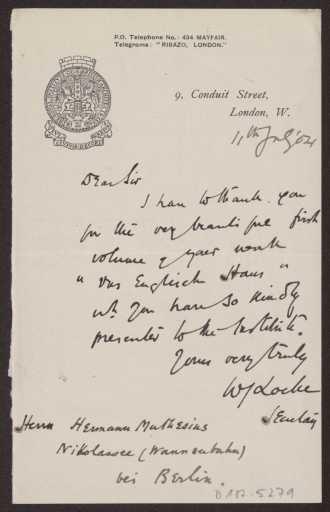 P.O. Telephone No.: 434 MAYFAIR.
Telegrams: "RIBAZO, LONDON."
9, Conduit Street,
London, W.
11th July 04
Dear Sir
I have to thank you
for the very beautiful first
volume of your work
"Das Englische Haus"
wh. you have so kindly
presented to the Institute.
Yours very truly
WJ Locke
Secretary
Herrn Hermann Muthesius
Nikolassee (Wannseebahn)
bei Berlin.
D 102-5279